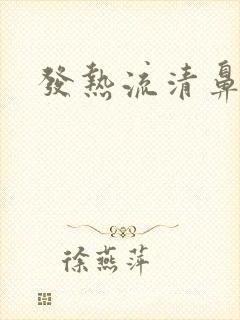 發熱流清鼻
徐燕萍